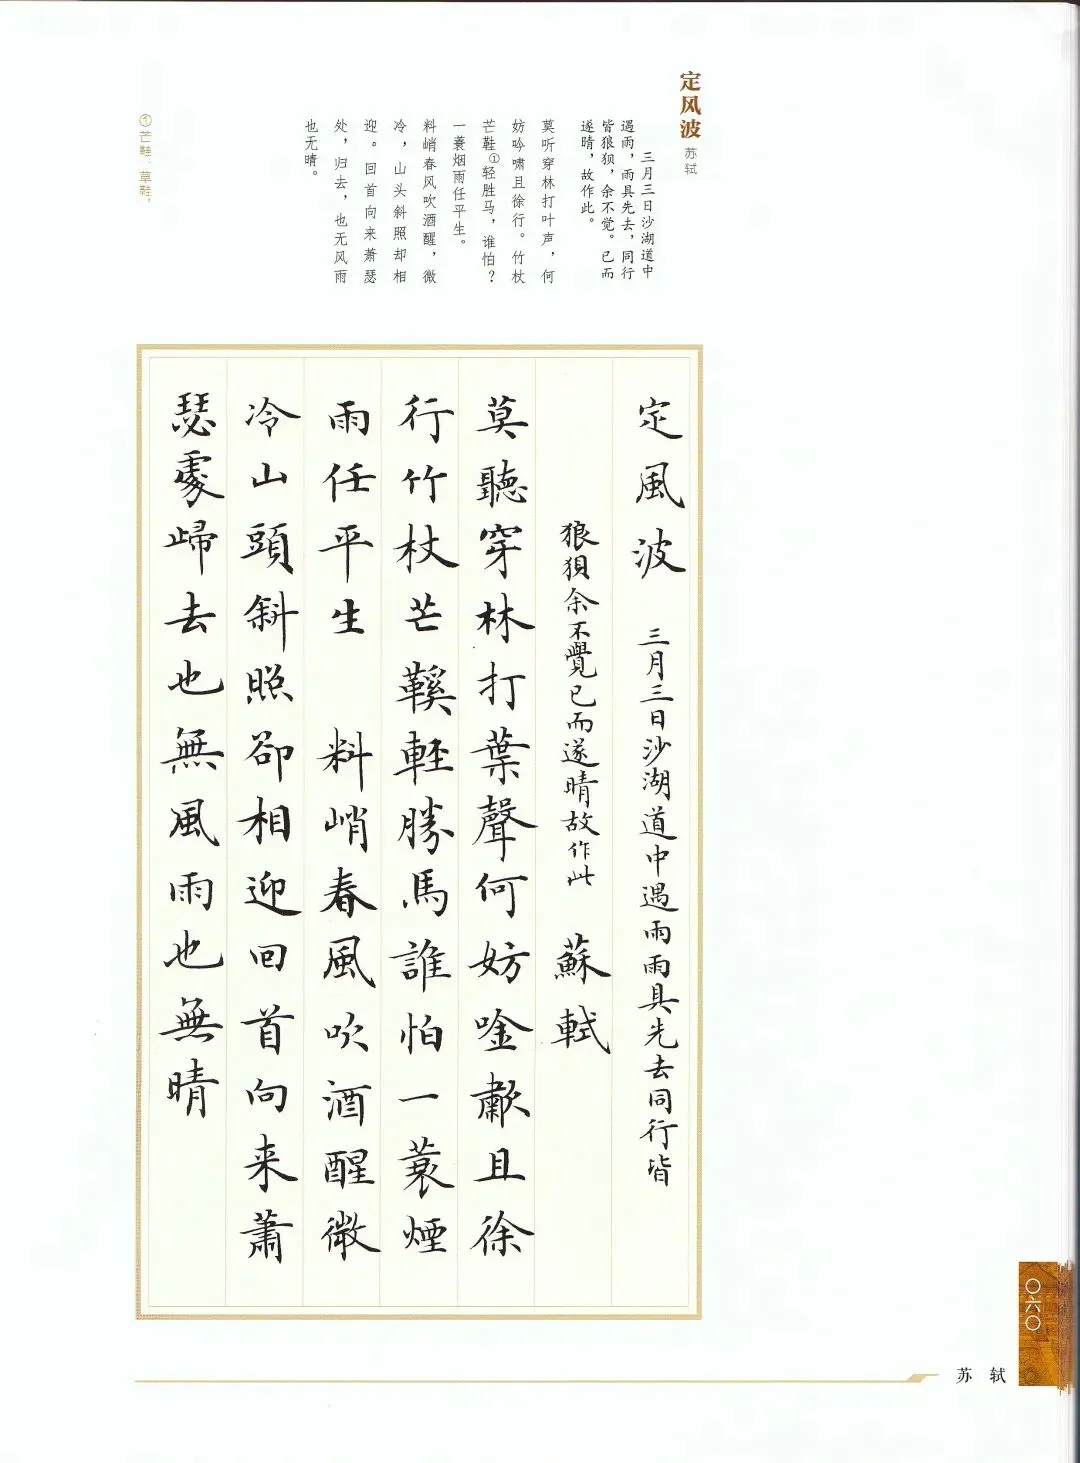 定风波
苏轼
三月三日沙湖道中
遇雨，雨具先去，同行
皆狼狈，余不觉。已而
遂晴，故作此。
莫听穿林打叶声，何
妨吟啸且徐行。竹杖
芒鞋①轻胜马，谁怕？
一蓑烟雨任平生。
料峭春风吹酒醒，微
冷，山头斜照却相
迎。回首向来萧瑟
处，归去，也无风雨
也无晴。
①芒鞋：草鞋。
定風波 三月三日沙湖道中遇雨雨具先去同行皆
狼狽余不覺已而遂晴故作此 蘇軾
莫聽穿林打葉聲何妨唫歗且徐
行竹杖芒鞵輕勝馬誰怕一蓑煙
雨任平生 料峭春風吹酒醒微
冷山頭斜照卻相迎回首向来蕭
瑟處歸去也無風雨也無晴
〇六〇
苏轼